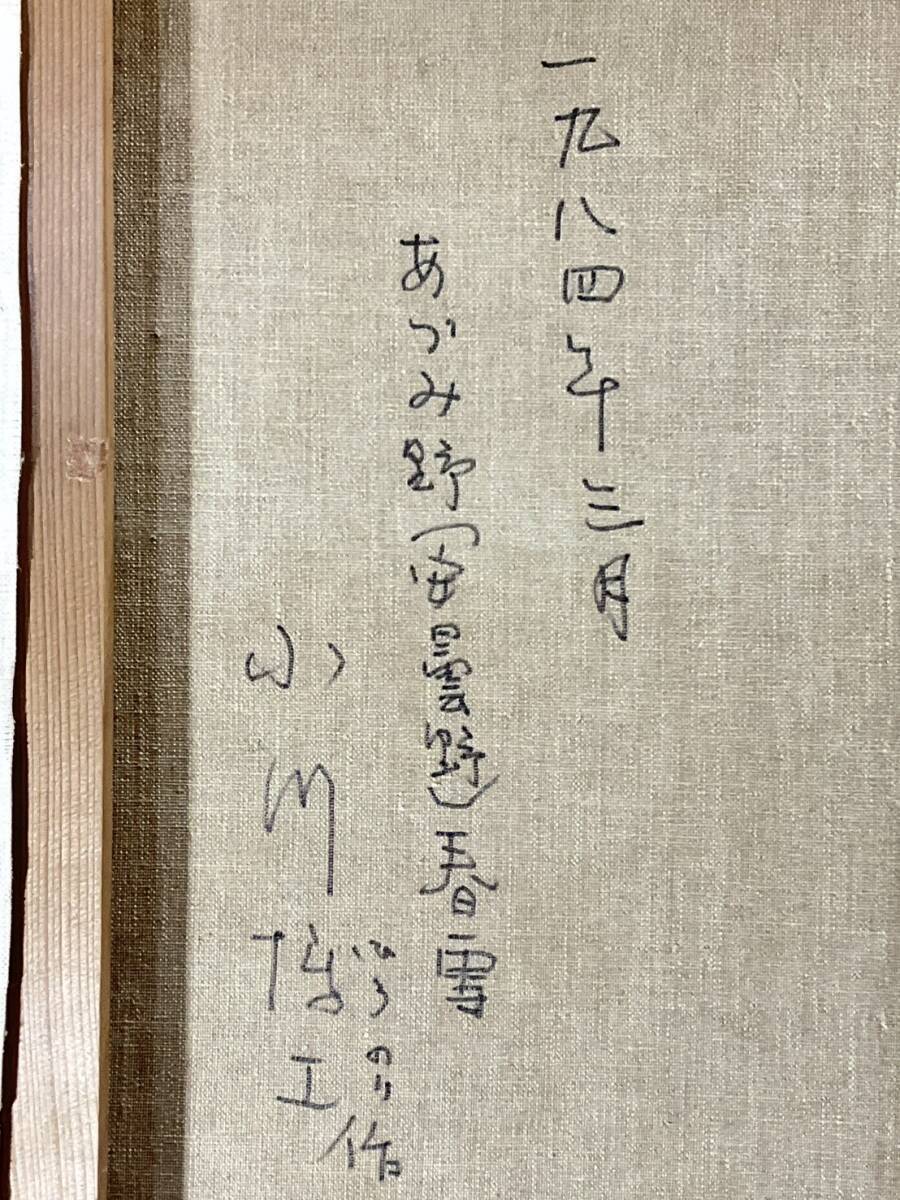 一九八四年三月
あづみ野(安曇野)春雪
小川博工作
ひろのり